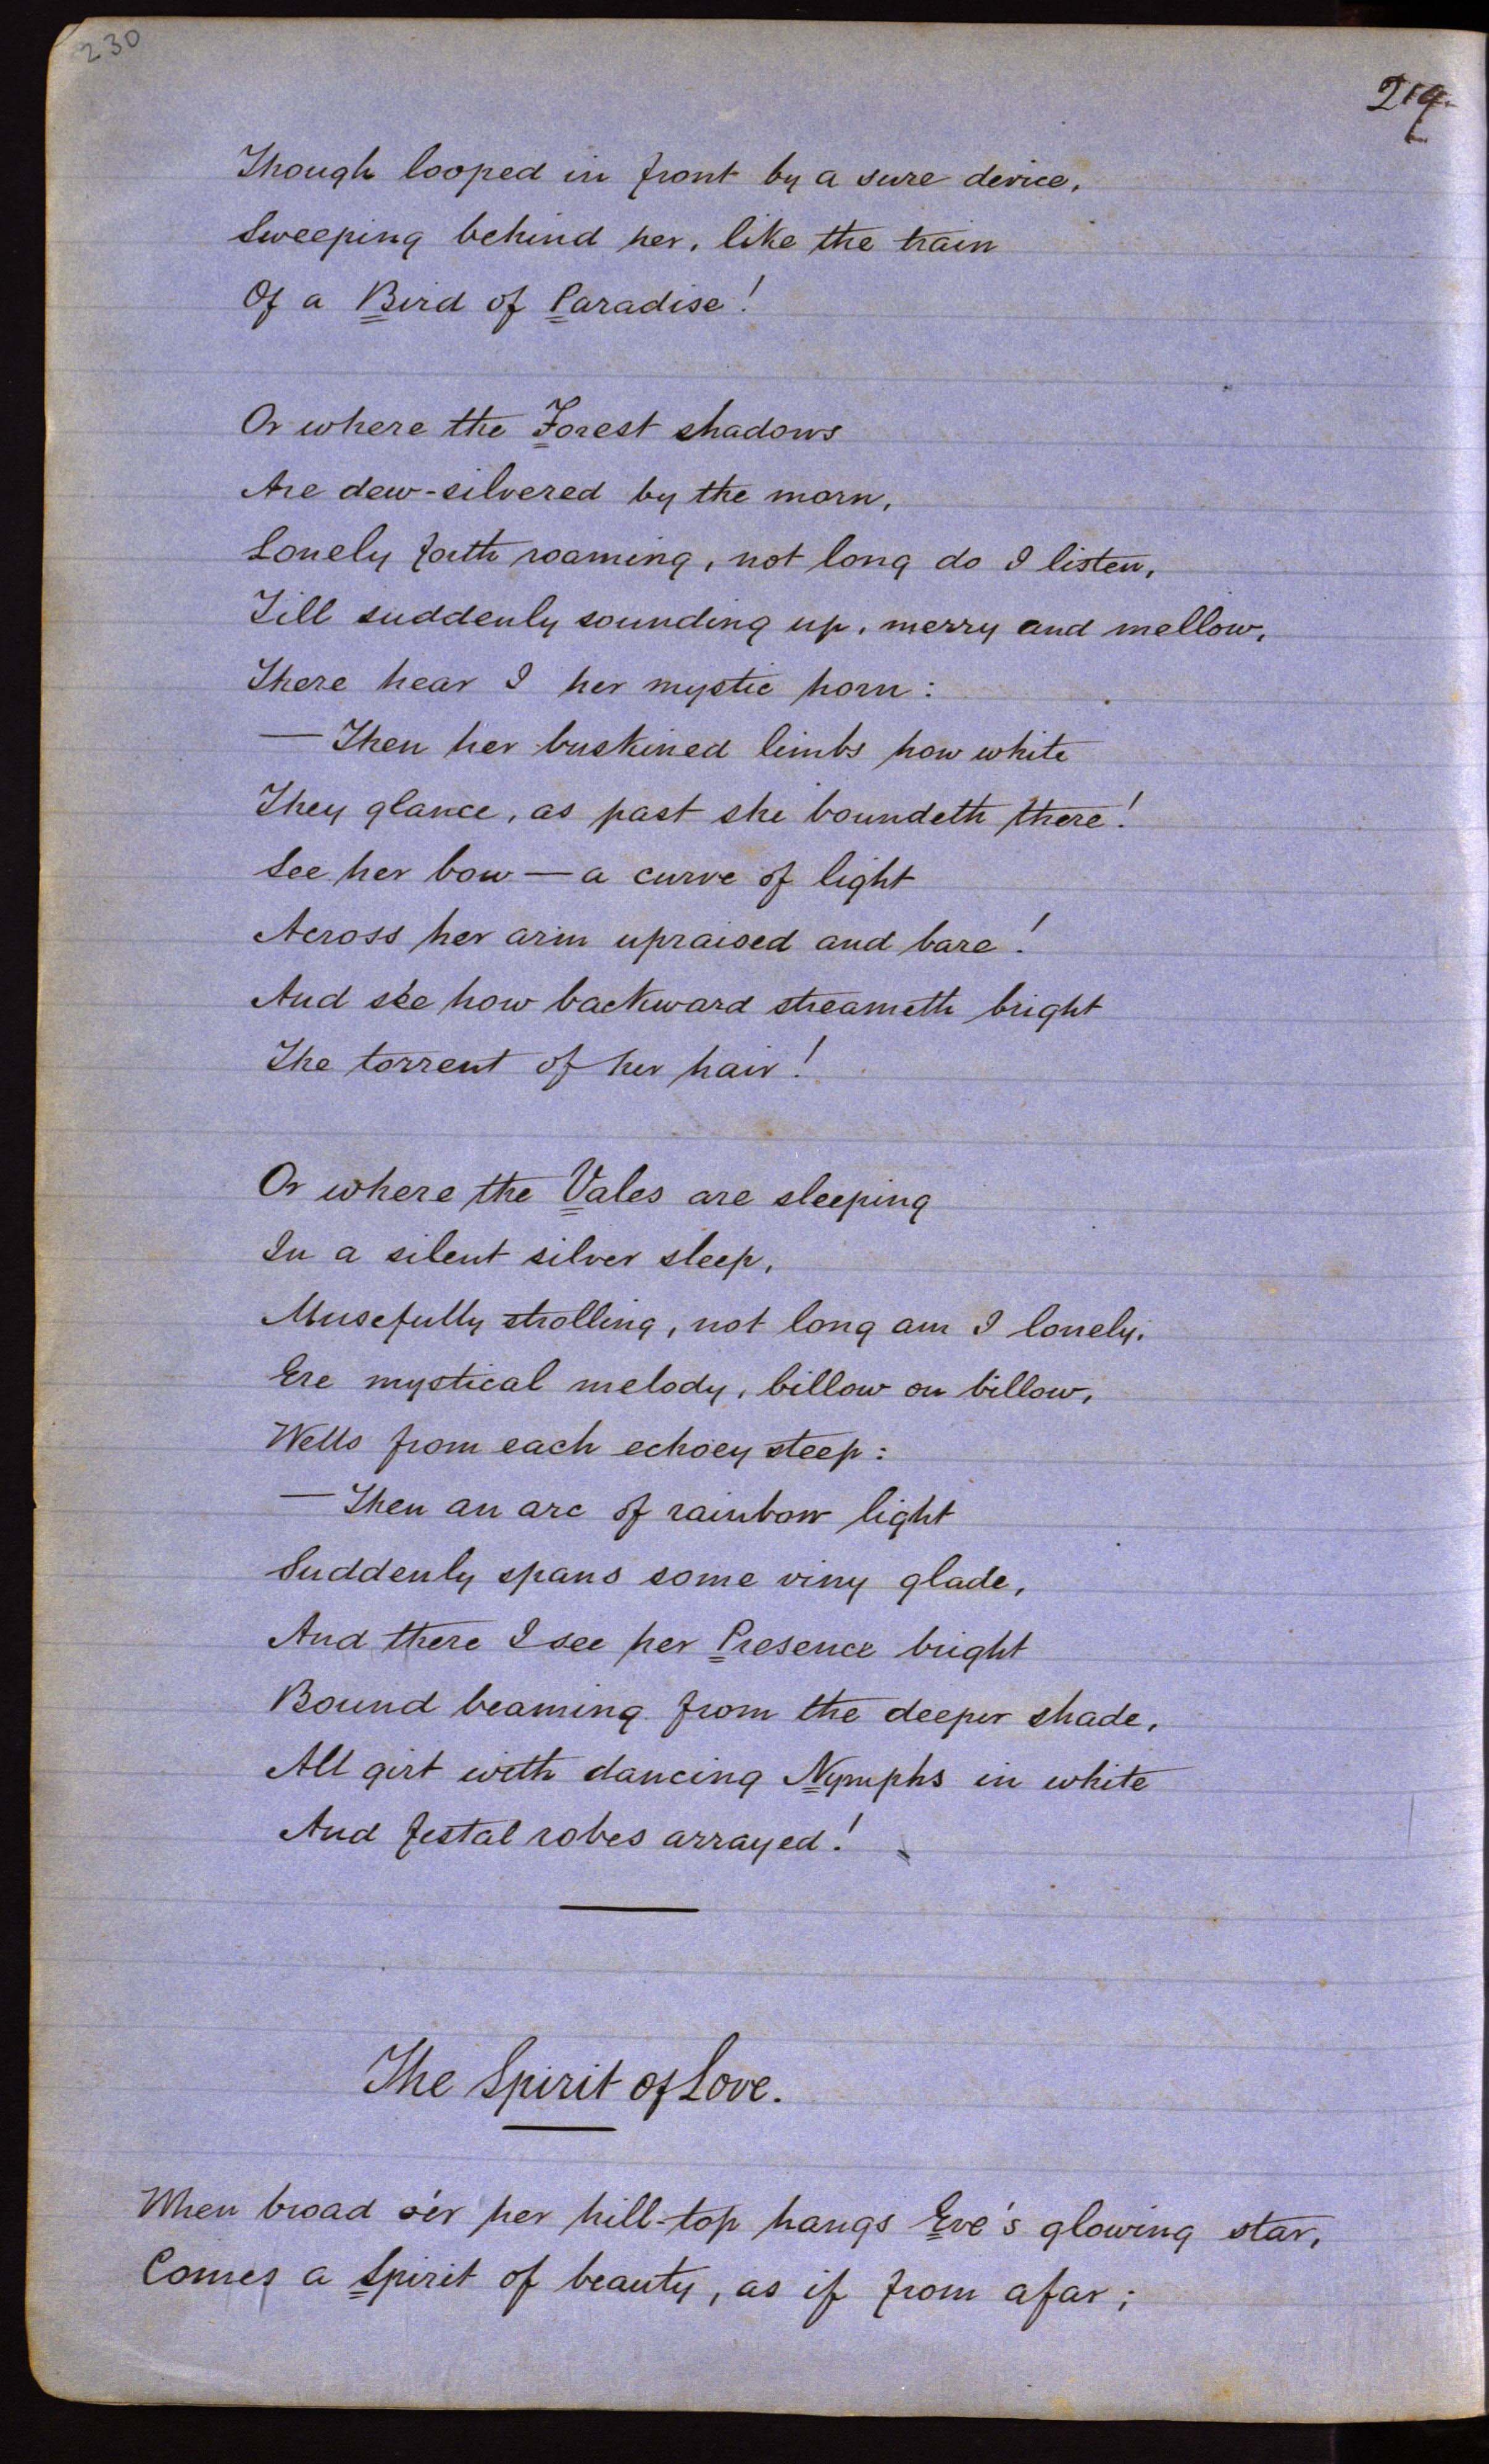 230
219
Though looped in front by a sure device,
Sweeping behind her, like the train
Of a Bird of Paradise!
Or where the Forest shadows
Are dew-silvered by the morn,
Lonely forth roaming, not long do I listen,
Till suddenly sounding up, merry and mellow,
There hear I her mystic horn:
— Then her buskined limbs how white
They glance, as past she boundeth there!
See her bow — a curve of light
Across her arm upraised and bare!
And see how backward streameth bright
The torrent of her hair!
Or where the Vales are sleeping
In a silent silver sleep,
Musefully strolling, not long am I lonely,
Ere mystical melody, billow on billow,
Wells from each echoey steep:
— Then an arc of rainbow light
Suddenly spans some viny glade,
And there I see her Presence bright
Bound beaming from the deeper shade,
All girt with dancing Nymphs in white
And festal robes arrayed!
The Spirit of Love.
When broad o'er her hill-top hangs Eve's glowing star,
Comes a Spirit of beauty, as if from afar;